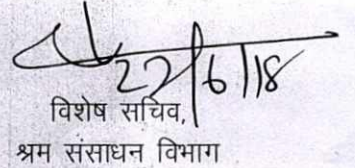 22/6/18
विशेष सचिव,
श्रम संसाधन विभाग